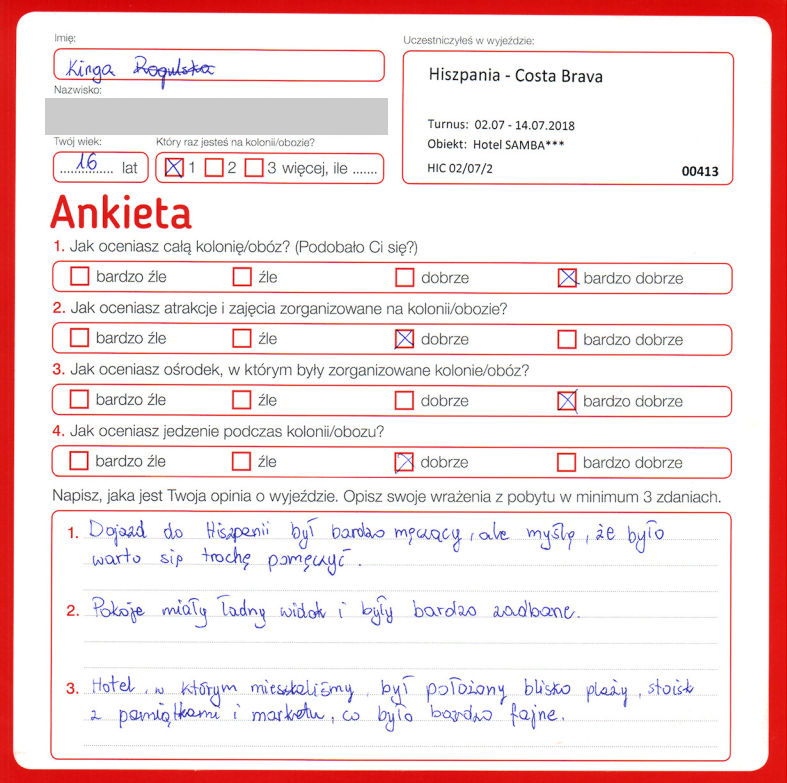 Imię:
Kinga
Nazwisko:
Twój wiek:
16 lat
Który raz jesteś na kolonii/obozie?
1 2 3 więcej, ile .......
Uczestniczyłeś w wyjeździe:
Hiszpania - Costa Brava
Turnus: 02.07 - 14.07.2018
Obiekt: Hotel SAMBA***
HIC 02/07/2 00413
Ankieta
1. Jak oceniasz całą kolonię/obóz? (Podobało Ci się?)
bardzo źle źle dobrze bardzo dobrze
2. Jak oceniasz atrakcje i zajęcia zorganizowane na kolonii/obozie?
bardzo źle źle dobrze bardzo dobrze
3. Jak oceniasz ośrodek, w którym były zorganizowane kolonie/obóz?
bardzo źle źle dobrze bardzo dobrze
4. Jak oceniasz jedzenie podczas kolonii/obozu?
bardzo źle źle dobrze bardzo dobrze
Napisz, jaka jest Twoja opinia o wyjeździe. Opisz swoje wrażenia z pobytu w minimum 3 zdaniach.
1. Dojazd do Hiszpenii był bardzo męczący, ale myślę, że było
warto się trochę pomęczyć.
2. Pokoje miały ładny widok i były bardzo zadbane.
3. Hotel, w którym mieszkaliśmy, był położony blisko plaży, stoisk
z pamiątkami i marketu, co było bardzo fajne.